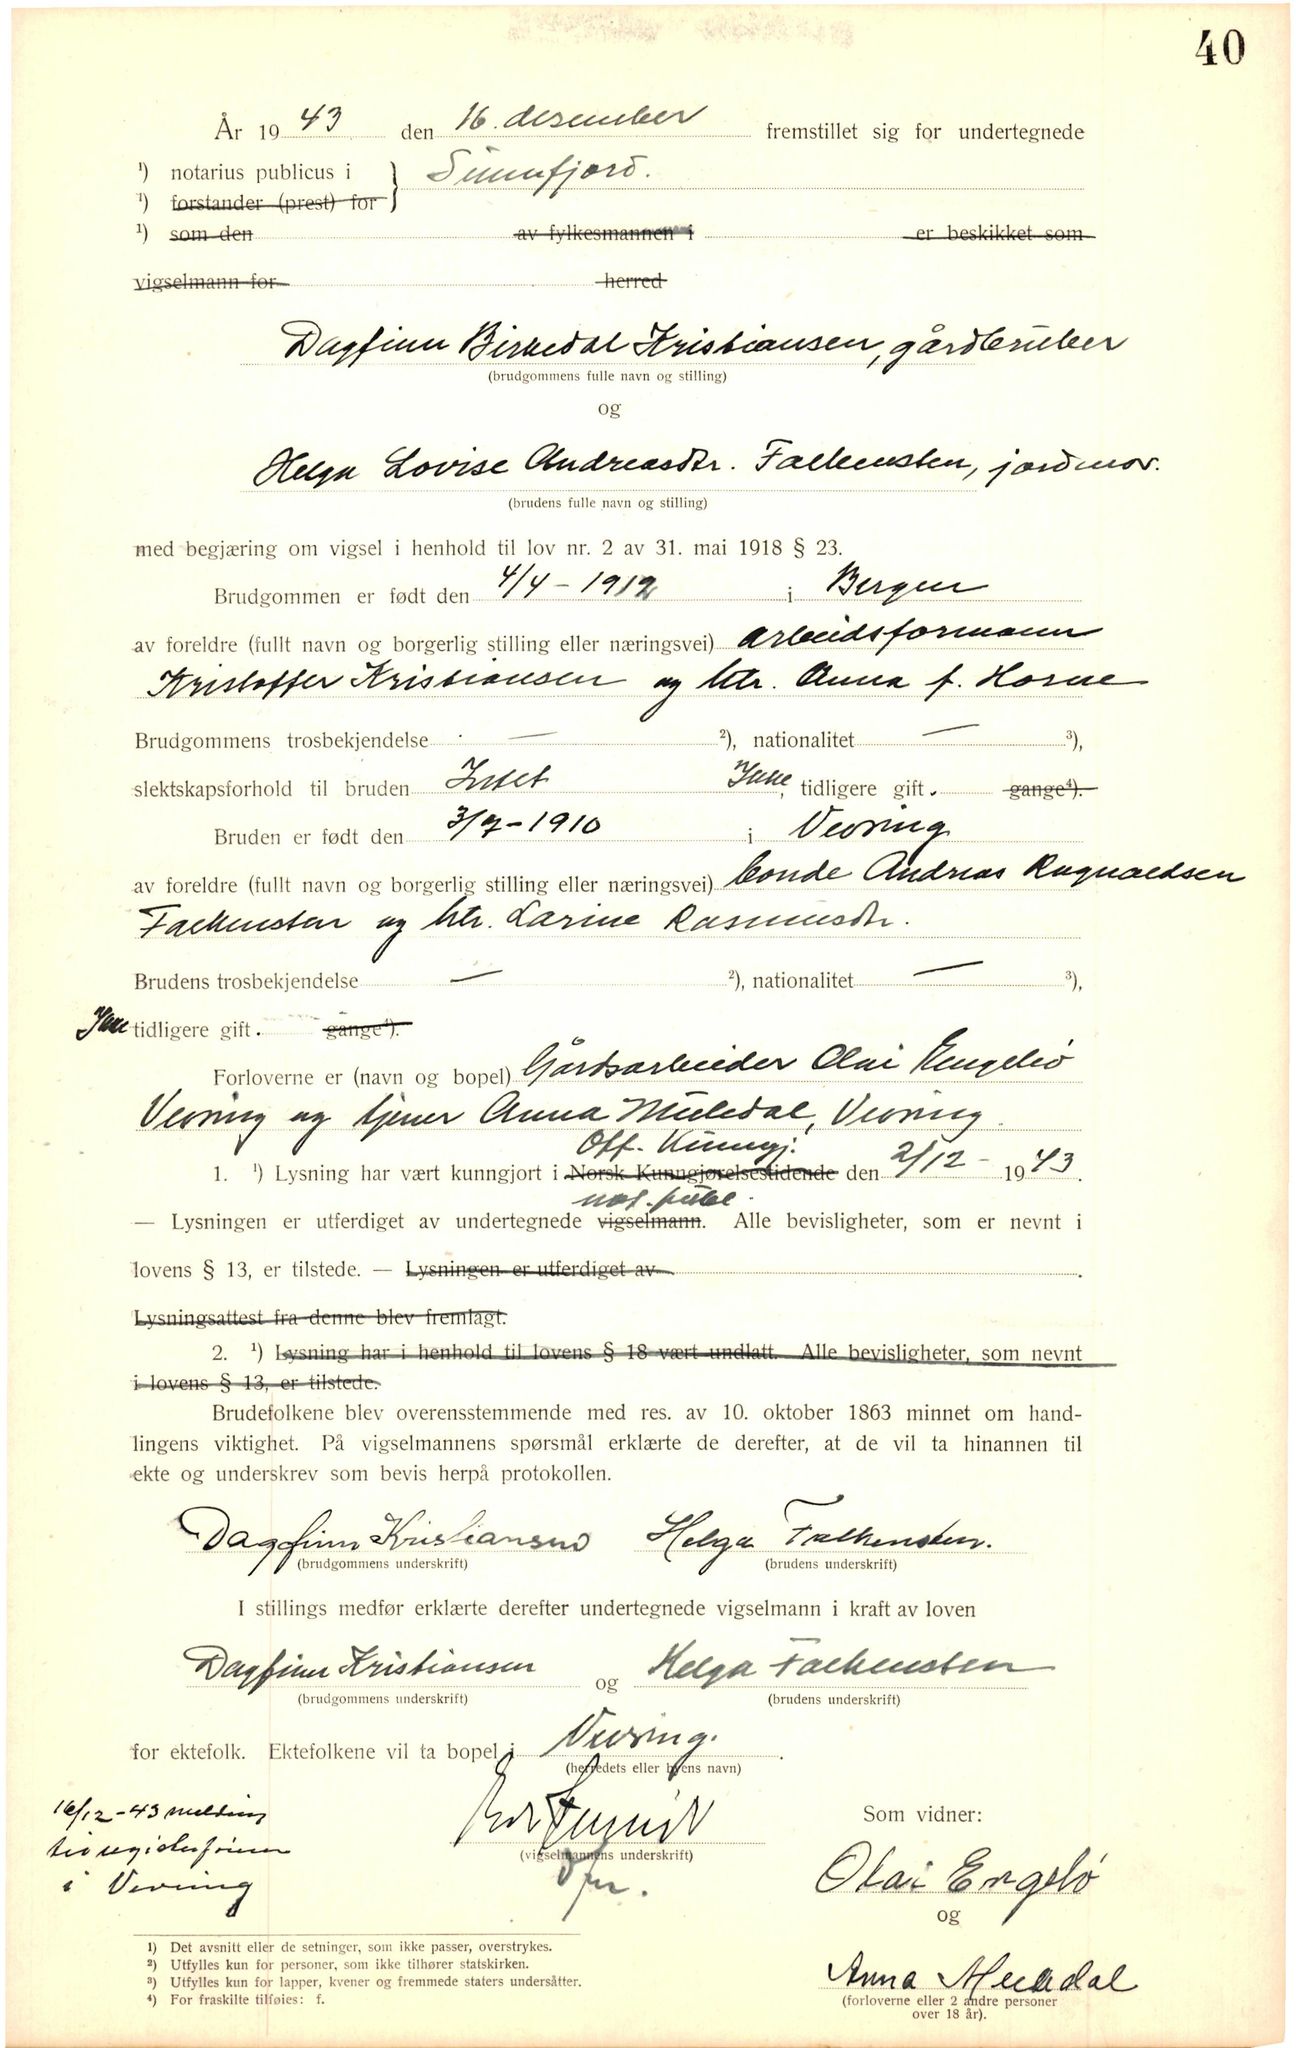 40
År 1943 den 16. desember fremstillet sig for undertegnede
¹) notarius publicus i } Sunnfjord.
¹) forstander (prest) for
¹) som den av fylkesmannen i er beskikket som
vigselmann for herred
Dagfinn Birkedal Kristiansen, gårdbruker
(brudgommens fulle navn og stilling)
og
Helga Lovise Andreasdtr. Falkensten, jordmor.
(brudens fulle navn og stilling)
med begjæring om vigsel i henhold til lov nr. 2 av 31. mai 1918 § 23.
Brudgommen er født den 4/4 - 1912 i Bergen
av foreldre (fullt navn og borgerlig stilling eller næringsvei) arbeidsformann
Kristoffer Kristiansen og htr. Anna f. Horne
Brudgommens trosbekjendelse — ²), nationalitet — ³),
slektskapsforhold til bruden Intet Ikke, tidligere gift. gange⁴).
Bruden er født den 3/7 - 1910 i Vevring
av foreldre (fullt navn og borgerlig stilling eller næringsvei) bonde Andreas Ragnvaldsen
Falkensten og htr. Larine Rasmusdtr.
Brudens trosbekjendelse — ²), nationalitet — ³),
Ikke tidligere gift. gange⁴).
Forloverne er (navn og bopel) Gårdsarbeider Olai Engebø
Vevring og tjener Anna Muledal, Vevring
Off. Kunngj.
1. ¹) Lysning har vært kunngjort i Norsk Kunngjørelsestidende den 2/12 - 1943.
not. publ.
— Lysningen er utferdiget av undertegnede vigselmann. Alle bevisligheter, som er nevnt i
lovens § 13, er tilstede. — Lysningen er utferdiget av
Lysningsattest fra denne blev fremlagt.
2. ¹) Lysning har i henhold til lovens § 18 vært undlatt. Alle bevisligheter, som nevnt
i lovens § 13, er tilstede.
Brudefolkene blev overensstemmende med res. av 10. oktober 1863 minnet om hand-
lingens viktighet. På vigselmannens spørsmål erklærte de derefter, at de vil ta hinannen til
ekte og underskrev som bevis herpå protokollen.
Dagfinn Kristiansen Helga Falkensten.
(brudgommens underskrift) (brudens underskrift)
I stillings medfør erklærte derefter undertegnede vigselmann i kraft av loven
Dagfinn Kristiansen og Helga Falkensten
(brudgommens underskrift) (brudens underskrift)
for ektefolk. Ektefolkene vil ta bopel i Vevring.
(herredets eller byens navn)
16/12 - 43 melding
i Vevring
(vigselmannens underskrift)
Som vidner:
Olai Engebø
og
Anna Muledal
(forloverne eller 2 andre personer
over 18 år).
1) Det avsnitt eller de setninger, som ikke passer, overstrykes.
2) Utfylles kun for personer, som ikke tilhører statskirken.
3) Utfylles kun for lapper, kvener og fremmede staters undersåtter.
4) For fraskilte tilføies: f.